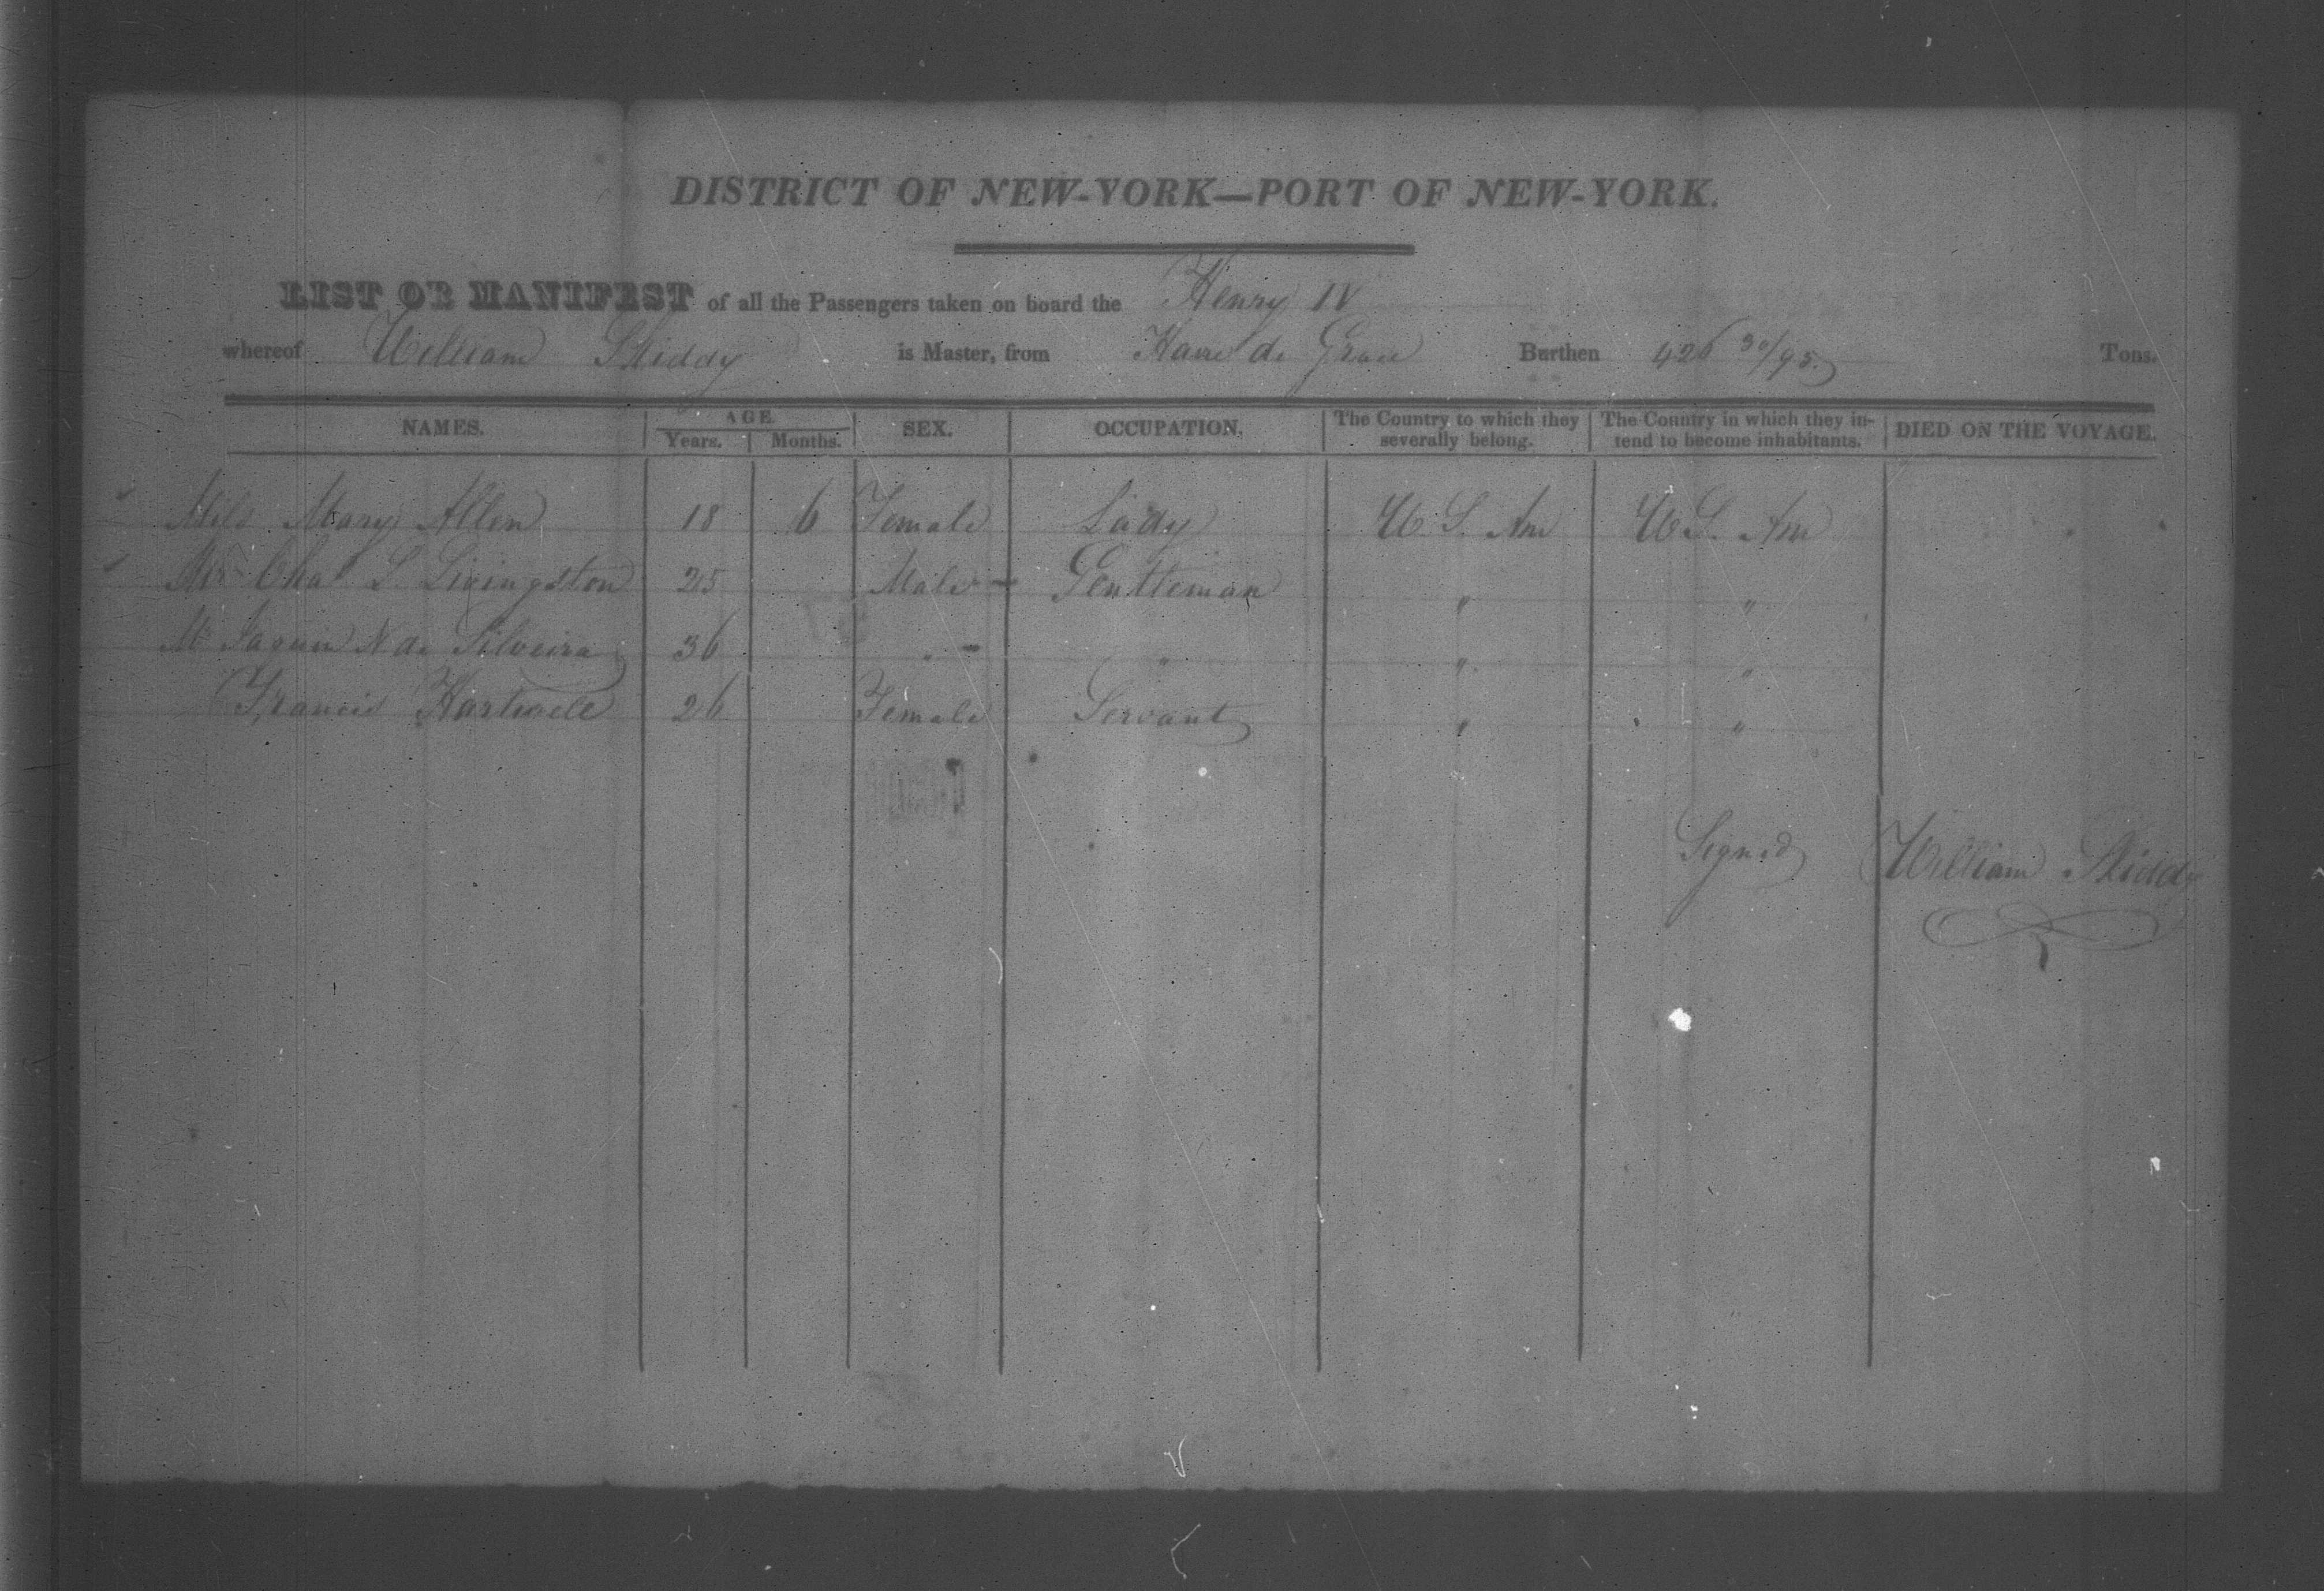 DISTRICT OF NEW-YORK—PORT OF NEW-YORK.
LIST OR MANIFEST of all the Passengers taken on board the Henry IV
whereof William Skiddy is Master, from Havre de Grace Burthen 426 30/95 Tons.
NAMES. AGE. Years. Months. SEX. OCCUPATION. The Country to which they severally belong. The Country in which they intend to become inhabitants. DIED ON THE VOYAGE.
Miss Mary Allen 18 6 Female Lady U. S. Am U S. Am
Mr Chas S. Livingston 25 Male Gentleman " "
Mr Jaquin N de Silveira 36 " " " "
Francis Hartwell 26 Female Servant " "
Signed William Skiddy